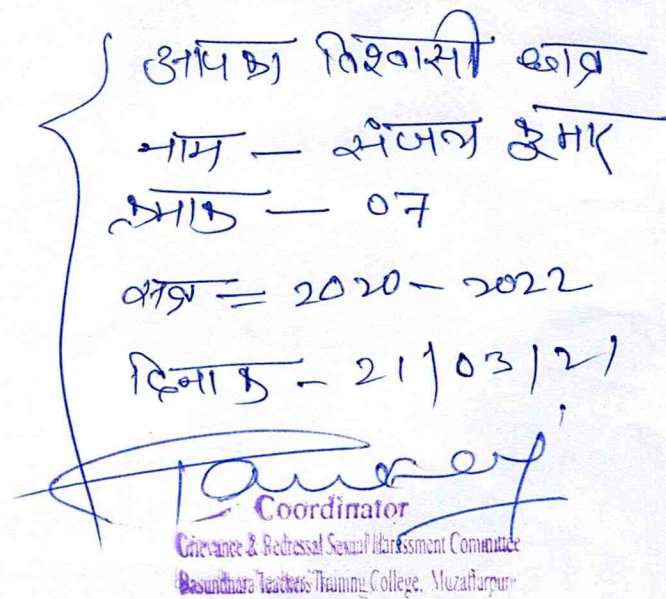 आपका विश्वासी छात्र
नाम — संजय कुमार
क्रमांक — 07
सत्र = 2020 - 2022
दिनांक - 21/03/21
Coordinator
Grievance & Redressal Sexual Harassment Committee
Basundhara Teachers Training College, Muzaffarpur